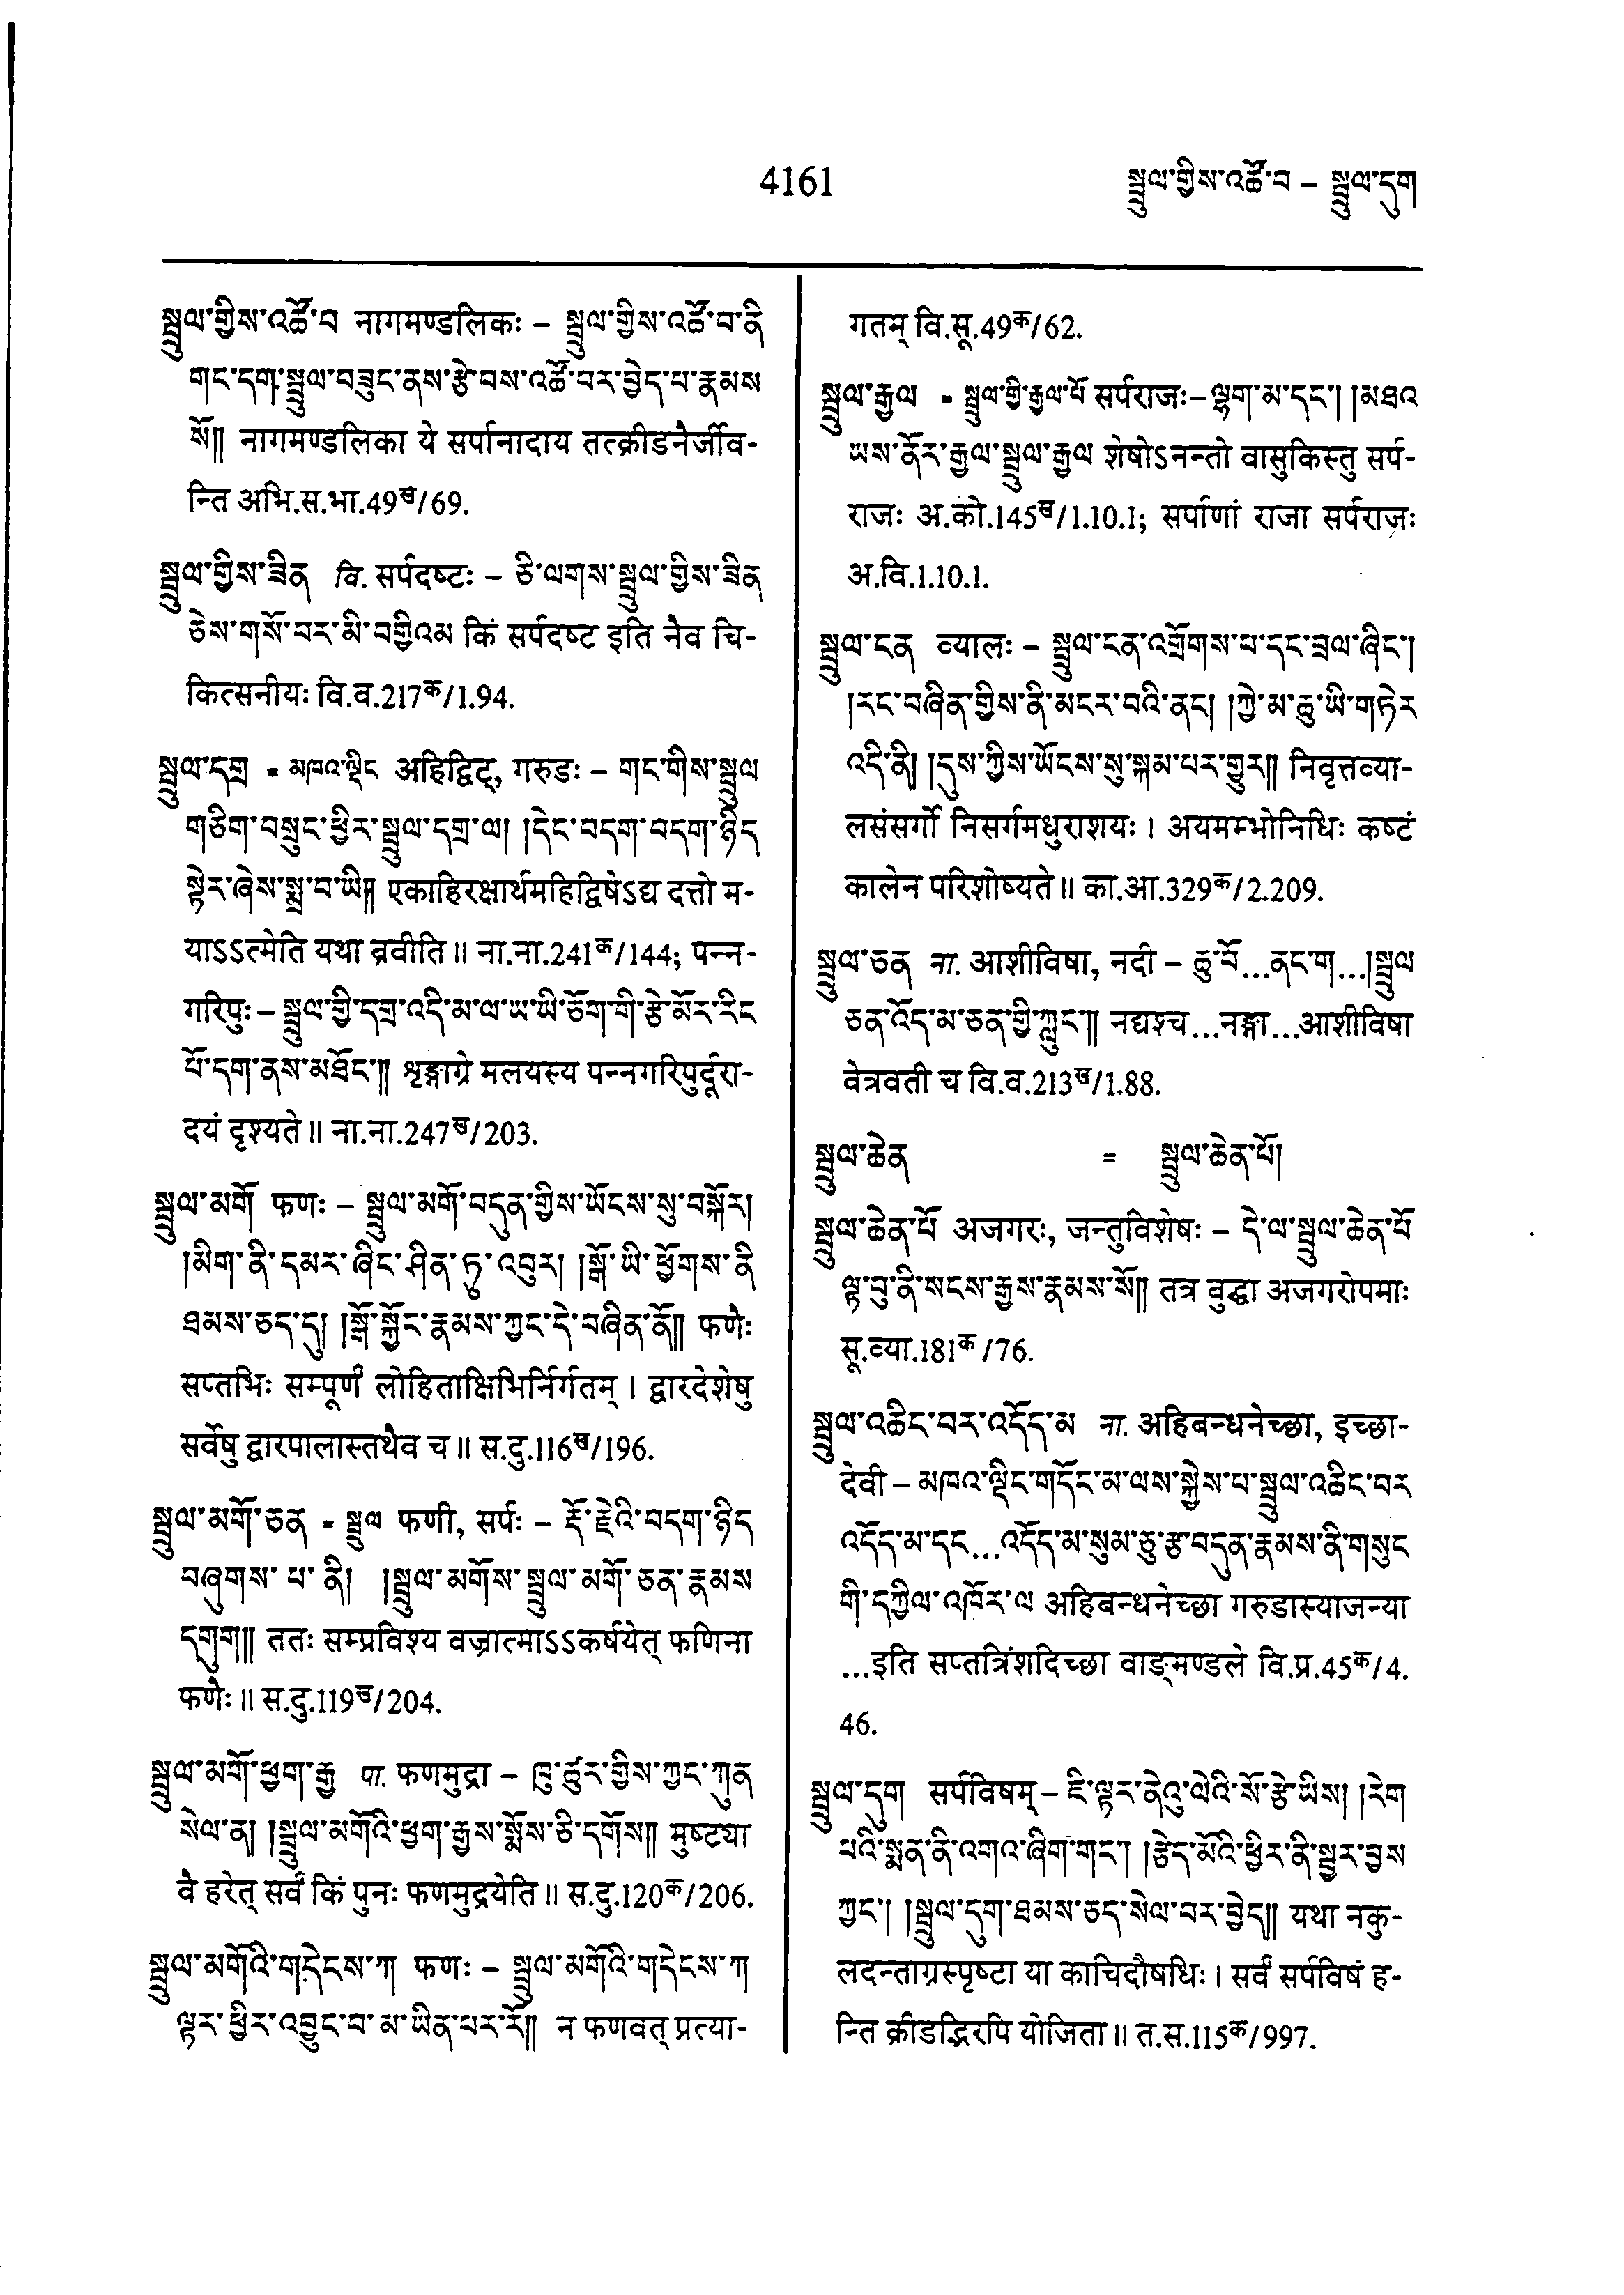 4161
སྦྲུལ་གྱིས་འཚོ་བ – སྦྲུལ་དུག
སྦྲུལ་གྱིས་འཚོ་བ नागमण्डलिकः – སྦྲུལ་གྱིས་འཚོ་བ་ནི
གང་དག་སྦྲུལ་བཟུང་ནས་རྩེ་བས་འཚོ་བར་བྱེད་པ་རྣམས
སོ༎ नागमण्डलिका ये सर्पानादाय तत्क्रीडनैर्जीव-
न्ति अभि.स.भा.49ख/69.
སྦྲུལ་གྱིས་ཟིན वि. सर्पदष्टः – ཅི་ལགས་སྦྲུལ་གྱིས་ཟིན
ཅེས་གསོ་བར་མི་བགྱིའམ किं सर्पदष्ट इति नैव चि-
कित्सनीयः वि.व.217क/1.94.
སྦྲུལ་དགྲ = མཁའ་ལྡིང अहिद्विट्, गरुडः – གང་གིས་སྦྲུལ
གཅིག་བསྲུང་ཕྱིར་སྦྲུལ་དགྲ་ལ། །དེང་བདག་བདག་ཉིད
སྟེར་ཞེས་སྨྲ་བ་ཡི༎ एकाहिरक्षार्थमहिद्विषेऽद्य दत्तो म-
याऽऽत्मेति यथा ब्रवीति ॥ ना.ना.241क/144; पन्न-
गरिपुः – སྦྲུལ་གྱི་དགྲ་འདི་མ་ལ་ཡ་ཡི་ཅོག་གི་རྩེ་མོར་རིང
པོ་དག་ནས་མཐོང་༎ श्रृङ्गाग्रे मलयस्य पन्नगरिपुर्दूरा-
दयं दृश्यते ॥ ना.ना.247ख/203.
སྦྲུལ་མགོ फणः – སྦྲུལ་མགོ་བདུན་གྱིས་ཡོངས་སུ་བསྐོར།
།མིག་ནི་དམར་ཞིང་ཤིན་ཏུ་འབུར། །སྒོ་ཡི་ཕྱོགས་ནི
ཐམས་ཅད་དུ། །སྒོ་སྐྱོང་རྣམས་ཀྱང་དེ་བཞིན་ནོ༎ फणैः
सप्तभिः सम्पूर्णं लोहिताक्षिभिर्निर्गतम् । द्वारदेशेषु
सर्वेषु द्वारपालास्तथैव च ॥ स.दु.116ख/196.
སྦྲུལ་མགོ་ཅན = སྦྲུལ फणी, सर्पः – རྡོ་རྗེའི་བདག་ཉིད
བཞུགས་པ་ནི། །སྦྲུལ་མགོས་སྦྲུལ་མགོ་ཅན་རྣམས
དགུག༎ ततः सम्प्रविश्य वज्रात्माऽऽकर्षयेत् फणिना
फणैः ॥ स.दु.119ख/204.
སྦྲུལ་མགོ་ཕྱག་རྒྱ पा. फणमुद्रा – ཁུ་ཚུར་གྱིས་ཀྱང་ཀུན
སེལ་ན། །སྦྲུལ་མགོའི་ཕྱག་རྒྱས་སྨོས་ཅི་དགོས༎ मुष्टया
वै हरेत् सर्वं किं पुनः फणमुद्रयेति ॥ स.दु.120क/206.
སྦྲུལ་མགོའི་གདེངས་ཀ फणः – སྦྲུལ་མགོའི་གདེངས་ཀ
ལྟར་ཕྱིར་འབྱུང་བ་མ་ཡིན་པར་རོ༎ न फणवत् प्रत्या-
गतम् वि.सू.49क/62.
སྦྲུལ་རྒྱལ = སྦྲུལ་གྱི་རྒྱལ་པོ सर्पराजः – ལྷག་མ་དང་། །མཐའ
ཡས་ནོར་རྒྱལ་སྦྲུལ་རྒྱལ शेषोऽनन्तो वासुकिस्तु सर्प-
राजः अ.को.145ख/1.10.1; सर्पाणां राजा सर्पराजः
अ.वि.1.10.1.
སྦྲུལ་ངན व्यालः – སྦྲུལ་ངན་འགྲོགས་པ་དང་བྲལ་ཞིང་།
།རང་བཞིན་གྱིས་ནི་མངར་བའི་ནང། །ཀྱེ་མ་ཆུ་ཡི་གཏེར
འདི་ནི། །དུས་ཀྱིས་ཡོངས་སུ་སྐམ་པར་གྱུར༎ निवृत्तव्या-
लसंसर्गो निसर्गमधुराशयः । अयमम्भोनिधिः कष्टं
कालेन परिशोष्यते ॥ का.आ.329क/2.209.
སྦྲུལ་ཅན ना. आशीविषा, नदी – ཆུ་བོ...ནང་ག...།སྦྲུལ
ཅན་འོད་མ་ཅན་གྱི་ཀླུང་༎ नद्यश्च...नङ्गा...आशीविषा
वेत्रवती च वि.व.213ख/1.88.
སྦྲུལ་ཆེན = སྦྲུལ་ཆེན་པོ།
སྦྲུལ་ཆེན་པོ अजगरः, जन्तुविशेषः – དེ་ལ་སྦྲུལ་ཆེན་པོ
ལྟ་བུ་ནི་སངས་རྒྱས་རྣམས་སོ༎ तत्र बुद्धा अजगरोपमाः
सू.व्या.181क/76.
སྦྲུལ་འཆིང་བར་འདོད་མ ना. अहिबन्धनेच्छा, इच्छा-
देवी – མཁའ་ལྡིང་གདོང་མ་ལས་སྐྱེས་པ་སྦྲུལ་འཆིང་བར
འདོད་མ་དང...འདོད་མ་སུམ་ཅུ་རྩ་བདུན་རྣམས་ནི་གསུང
གི་དཀྱིལ་འཁོར་ལ अहिबन्धनेच्छा गरुडास्याजन्या
...इति सप्तत्रिंशदिच्छा वाङ्मण्डले वि.प्र.45क/4.
46.
སྦྲུལ་དུག सर्पविषम् – ཇི་ལྟར་ནེའུ་ལེའི་སོ་རྩེ་ཡིས། །རེག
པའི་སྨན་ནི་འགའ་ཞིག་གང་། །རྩེད་མོའི་ཕྱིར་ནི་སྦྱར་བྱས
ཀྱང་། །སྦྲུལ་དུག་ཐམས་ཅད་སེལ་བར་བྱེད༎ यथा नकु-
लदन्ताग्रस्पृष्टा या काचिदौषधिः । सर्वं सर्पविषं ह-
न्ति क्रीडद्भिरपि योजिता ॥ त.स.115क/997.